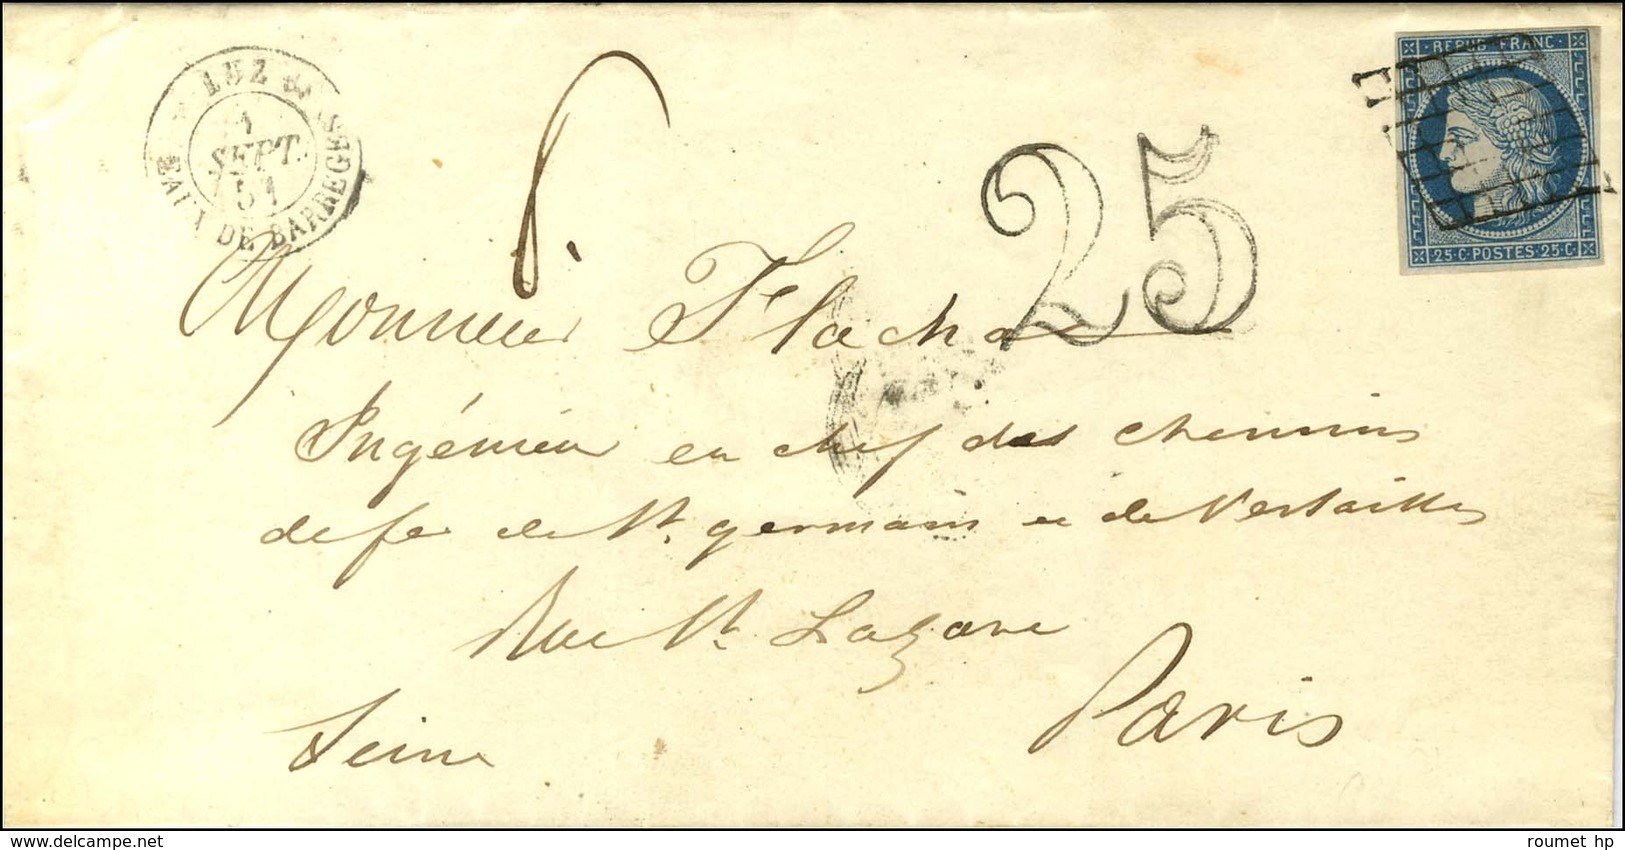 LUZ &
EAUX DE BARREGES
1
SEPT.
51
25
REPUB. FRANC.
25.C. POSTES 25.C.
Monsieur Flachat
Ingénieur en chef des chemins
de fer de St. germain et de Versailles
Rue St. Lazare
Paris
Seine
roumet hp